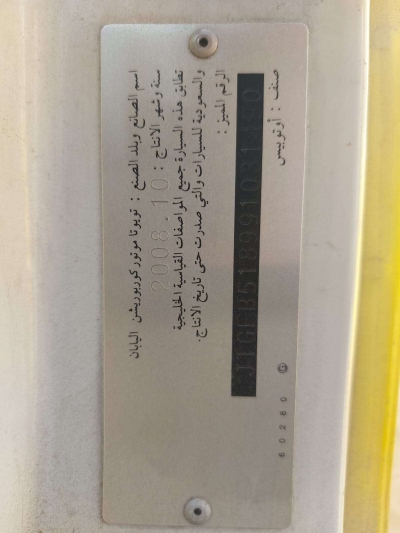 اسم الصانع وبلد الصنع : تويوتا موتور كوربوريشن اليابان
سنة وشهر الانتاج : 2008.10
تطابق هذه السيارة جميع المواصفات القياسية الخليجية
والسعودية للسيارات والتي صدرت حتى تاريخ الانتاج.
الرقم المميز :
صنف : أوتوبيس
60260